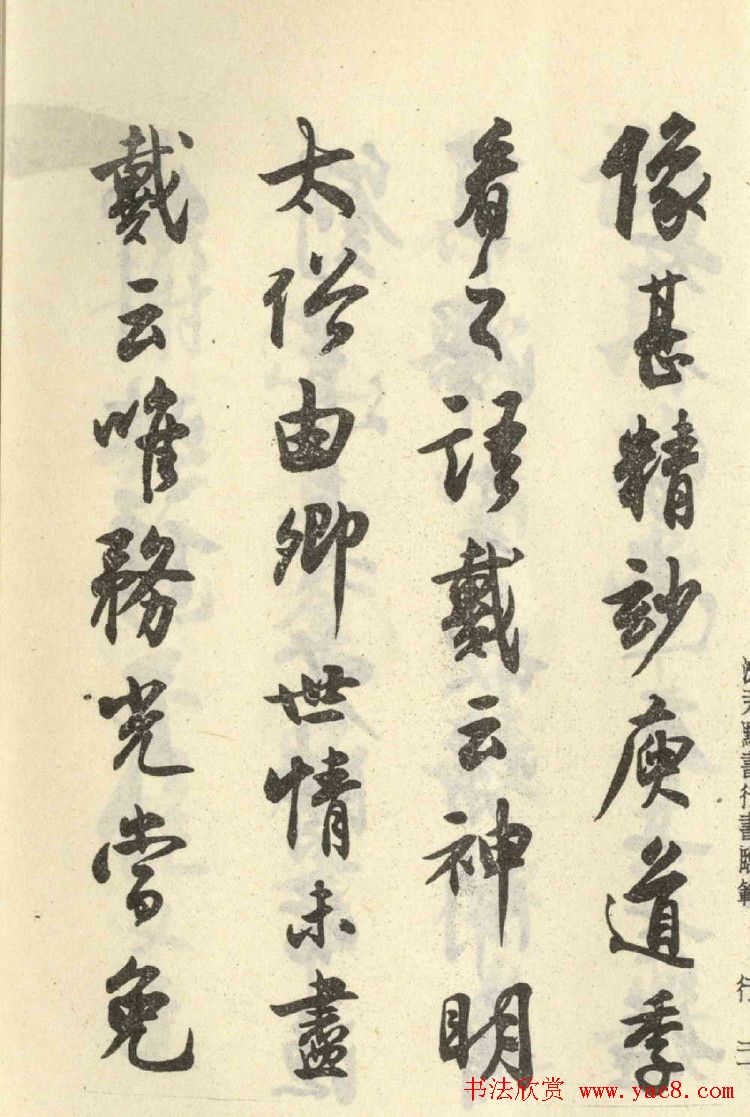 像甚精玅庾道季
看之語戴云神眀
太俗由卿世情未盡
戴云唯務光當免
书法欣赏 www.yac8.com